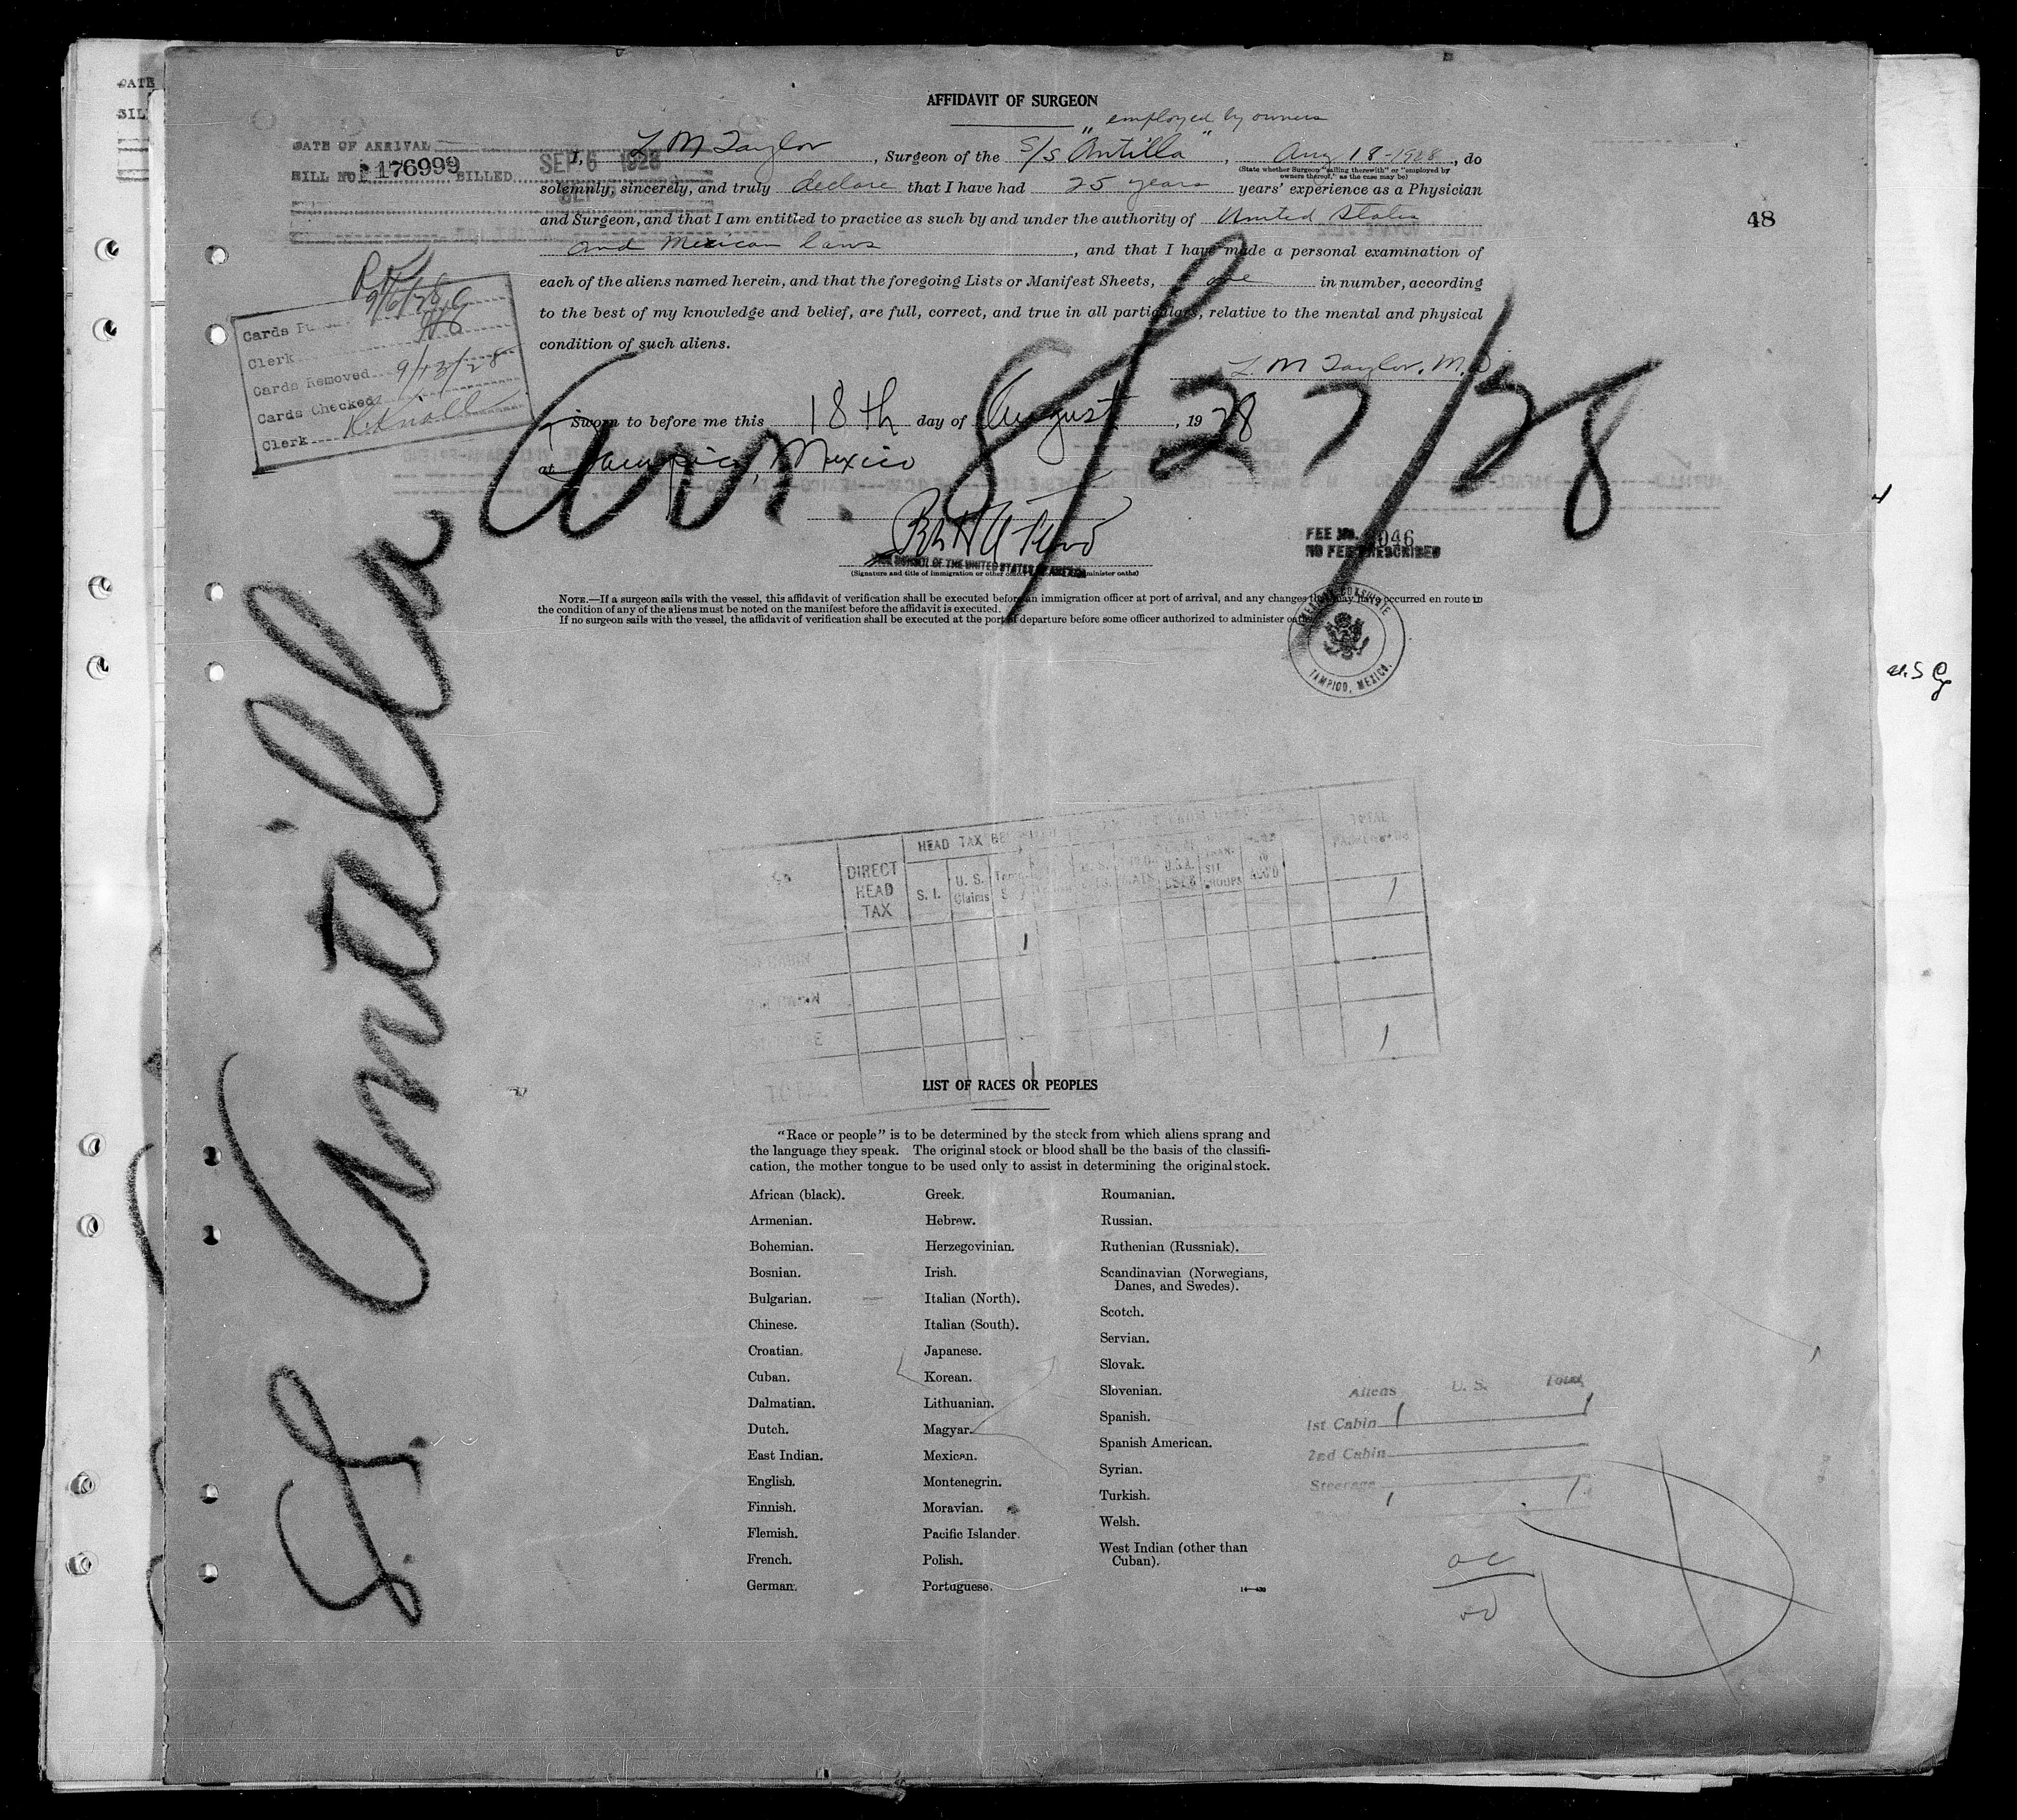 AFFIDAVIT OF SURGEON
employed by owners
DATE OF ARRIVAL
BILL NO. 176999 BILLED SEP 6 1928
I, L M Taylor, Surgeon of the S/S "Antilla", Aug 18-1928, do
(State whether Surgeon "sailing therewith" or "employed by
owners thereof," as the case may be)
solemnly, sincerely, and truly declare that I have had 25 years years' experience as a Physician
and Surgeon, and that I am entitled to practice as such by and under the authority of United States
and Mexican laws, and that I have made a personal examination of
each of the aliens named herein, and that the foregoing Lists or Manifest Sheets, one in number, according
to the best of my knowledge and belief, are full, correct, and true in all particulars, relative to the mental and physical
condition of such aliens.
L. M Taylor. M.D
48
9/6/28
Cards
Clerk
Cards Removed 9/13/28
Cards Checked
Clerk
Sworn to before me this 18th day of August, 1928
at Tampico, Mexico
Arr. 8/27/28
OF THE UNITED STATES OF AMERICA
(Signature and title of immigration or other officer administer oaths)
FEE No. 1046
NO FEE PRESCRIBED
NOTE.—If a surgeon sails with the vessel, this affidavit of verification shall be executed before an immigration officer at port of arrival, and any changes that may have occurred en route in
the condition of any of the aliens must be noted on the manifest before the affidavit is executed.
If no surgeon sails with the vessel, the affidavit of verification shall be executed at the port of departure before some officer authorized to administer oaths.
AMERICAN CONSULATE
TAMPICO, MEXICO.
S. Antilla
HEAD TAX
TOTAL
DIRECT
HEAD
TAX
S. I.
U. S.
Claims
1
1
1
1
LIST OF RACES OR PEOPLES
"Race or people" is to be determined by the stock from which aliens sprang and
the language they speak. The original stock or blood shall be the basis of the classifi-
cation, the mother tongue to be used only to assist in determining the original stock.
African (black).
Armenian.
Bohemian.
Bosnian.
Bulgarian.
Chinese.
Croatian.
Cuban.
Dalmatian.
Dutch.
East Indian.
English.
Finnish.
Flemish.
French.
German.
Greek.
Hebrew.
Herzegovinian.
Irish.
Italian (North).
Italian (South).
Japanese.
Korean.
Lithuanian.
Magyar.
Mexican.
Montenegrin.
Moravian.
Pacific Islander.
Polish.
Portuguese.
Roumanian.
Russian.
Ruthenian (Russniak).
Scandinavian (Norwegians,
Danes, and Swedes).
Scotch.
Servian.
Slovak.
Slovenian.
Spanish.
Spanish American.
Syrian.
Turkish.
Welsh.
West Indian (other than
Cuban).
Aliens U. S. Total
1st Cabin 1 1
2nd Cabin
Steerage
1 1